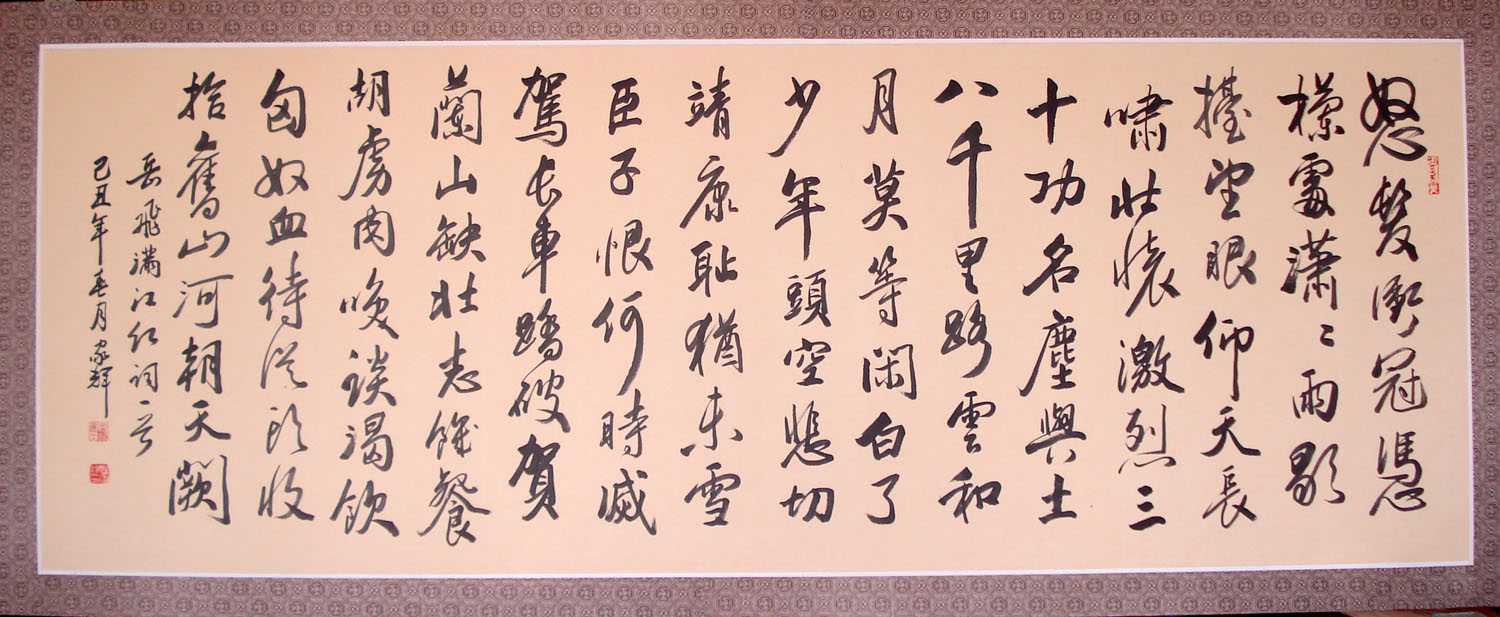 怒髮衝冠憑
欄處瀟〻雨歇
擡望眼仰天長
嘯壯懷激烈三
十功名塵與土
八千里路雲和
月莫等閑白了
少年頭空悲切
靖康恥猶未雪
臣子恨何時滅
駕长車踏破賀
蘭山缺壯志飢餐
胡虜肉唤談渴飲
匈奴血待從頭收
拾舊山河朝天闕
岳飛滿江紅詞一首
己丑年春月家輝